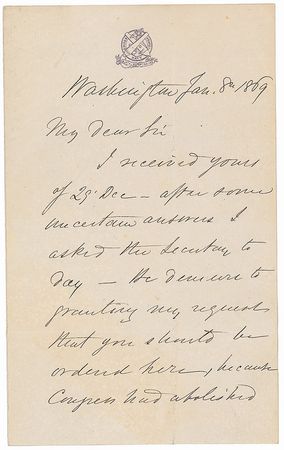 Washington Jan. 8th 1869
My Dear Sir
I received yours
of 29' Dec – after some
uncertain answers I
asked the Secretary to
day – He demurs to
granting my request
that you should be
ordered here, because
Congress had abolished